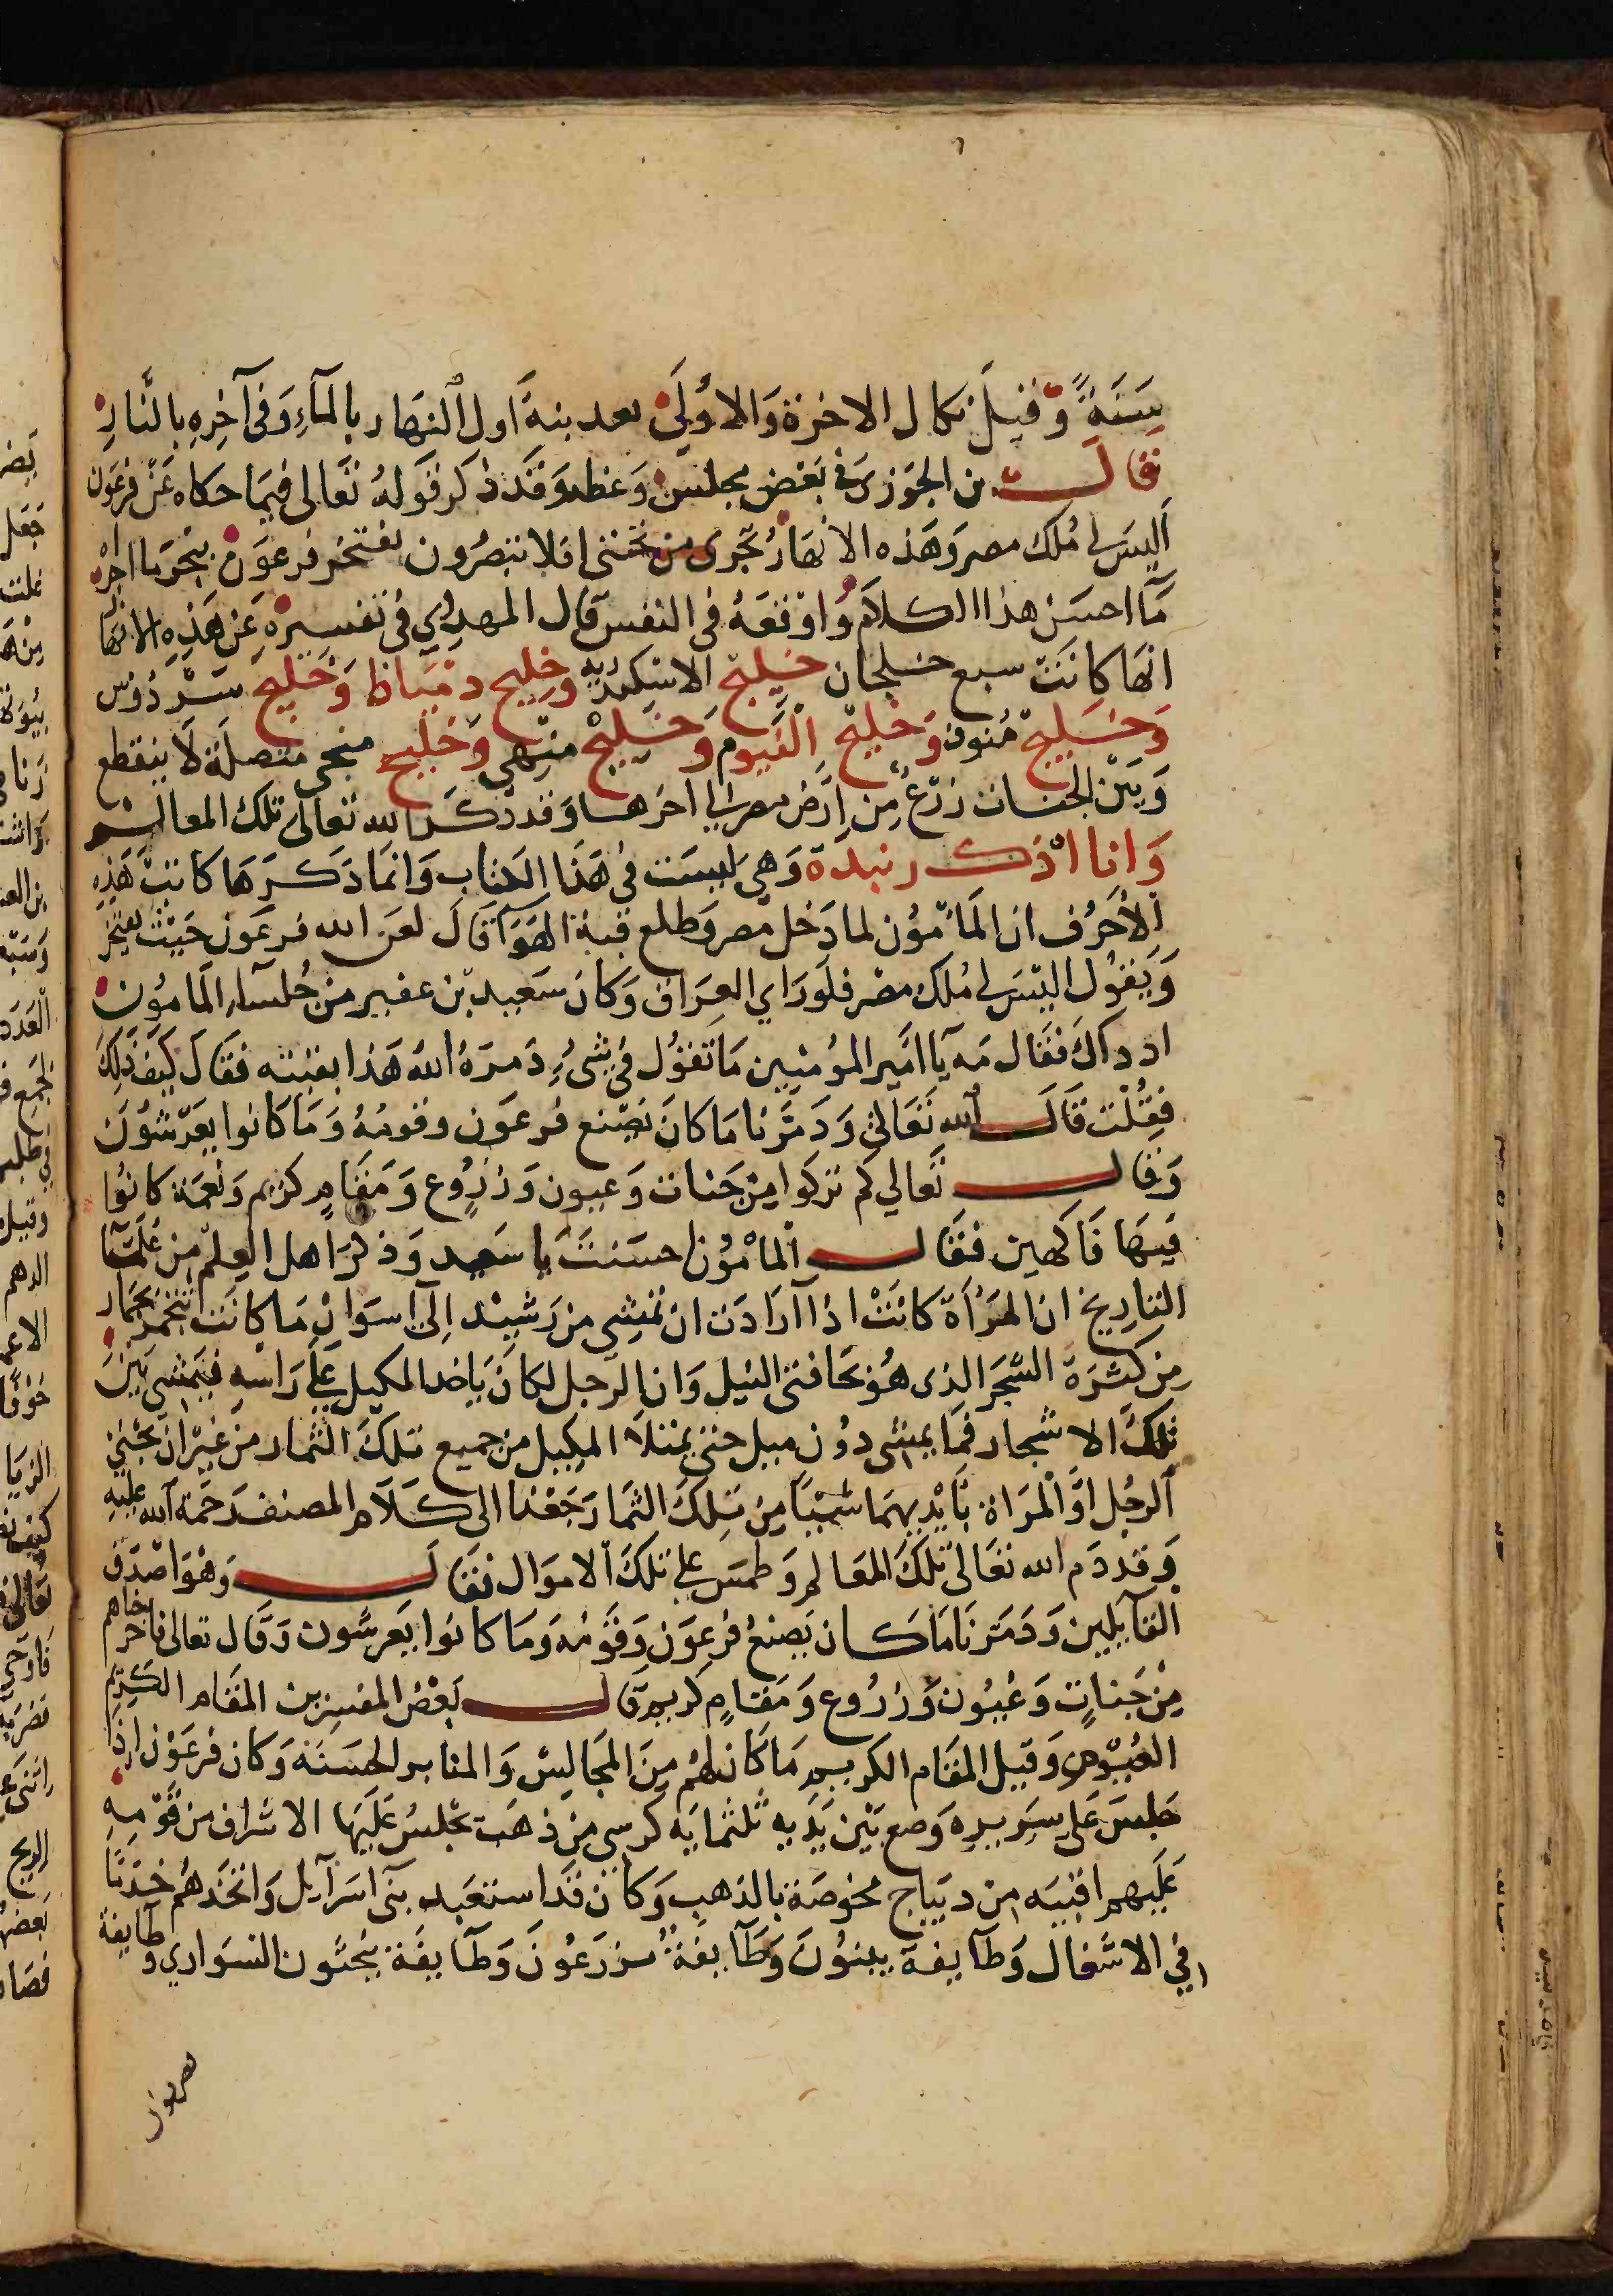 سَنَةً وَقيلَ نكال الاخرة وَالاوُلَىٰ بعد بنه اول النهَار بالمآءِ وَفى آخِرِهِ بالنَّارِ
قال بن الجَوَزى فى بَعض مجلس وَعظه وَقد ذكر قولهُ تعَالى فيمَا حكاه عَن فرعَون
اليسَ لى مُلك مصر وَهَذه الانهَارُ تجرى من تحتى افلا تبصرُون يفتخر فرعَون بنحر ما اجراه
مَآ احسَن هذا الكلامَ وَاوْقعَهُ فى النفس قال المهدوي فى تفسيره عَن هَذِه الانهَا
انهَا كانَت سبع خلجان خليج الاسكندريه وخليج دميَاط وَخليج سَردُوس
وَخليج مُنوف وَخليج الفيوم وَخليج منهى وَخليج منجى متصلة لا ينقطع
وَبَين الجنات زرع من ارَض مصر الي اخرها وَقد ذكر الله تعالى تلك المعالم
وَانا اذكر نبذة وَهي ليسَت فى هَذا الكتاب وَانمَا ذكرهَا كانت هَذِهِ
الاحَرُف ان المَامُون لما دَخل مصر وَطلع قبة الهوَآ قال لعَن الله فرعَون حَيث يفتخر
وَيَقول اليسَ لى مُلك مصر فلو رَاي العِرَاق وَكانَ سَعيد بن عفير من جُلسآء المامُون
اد داك فقال مَه يَا امَير المؤمنيين مَا تقول فى شىءٍ دَمرَهُ اللهُ هَذا بقيته فقالَ كيَف ذلِك
فقلت قال الله تعَالى وَدَمَّرنا مَا كانَ يَصنع فرعَون وقومُهُ وَمَا كانوا يعَرشوُنَ
وَقال تعَالي كم تركوا مِن جَنات وَعيون وَزرُوع وَمقَامٍ كريم وَنعمَة كانُوا
فيهَا فَاكهين فقال المامُون احسَنتَ يا سَعيد وَذكرَ اهل العلم من عُلمَآ
التاريخ ان المرَاة كانَتْ اذا آرادَت ان تمشي من رَشيد اِلى آسوَان مَا كانَت تتخمر بخمار
مِن كثرَة الشجَر الذى هُو بحَافتى النيل وَان الرجل لكانَ يَاخد المكيل علَى رَاسه فيَمشى بَينَ
تلك الاشجار فمَا يمشى دُون ميل حتى يمتلا المكيل من جميع تلكَ الثمار مِن غيْر ان يجني
الرجُل اوَ المرَاة بَايديهمَا شيئا مِن تلكَ الثمَار رَجَعْنا الى كلام المصنف رَحمَة الله عليه
وَقد دَم الله تعَالى تلكَ المعَالم وَطمسَ على تلكَ الاموَال فقال وَهوَ اصدَق
القآيلين وَدَمَّرنَا مَا كان يَصنعُ فرعَون وَقومُه وَمَا كانوا يَعرشون وَقال تعالى فاخرجناهم
مِنْ جَناتٍ وَعُيُون وَزرُوع وَمَقامٍ كريم قال بَعْضُ المفسِرين المقَام الكريم
الفيوم وَقيل المقام الكريم مَا كان لهُم مِنَ المجَالِس وَالمنابر الحسَنة وَكان فرعَوْن اذا
جلسَ على سَريره وَضع بَين يَدَيه ثلثمايَه كرسى من ذهَب تجْلسُ عَليهَا الاشراف من قومه
عَليهم اقبيَه من ديبَاج مخوصَة بالذهب وَكان قَد استعَبد بنى اسرآيل وَاتخذهُم خدَمًا
فى الاشغال وَطآيفة يبنوُنَ وَطآيفة يزرَعُونَ وَطآيفَة ينحتون السَواري وَطآيفة